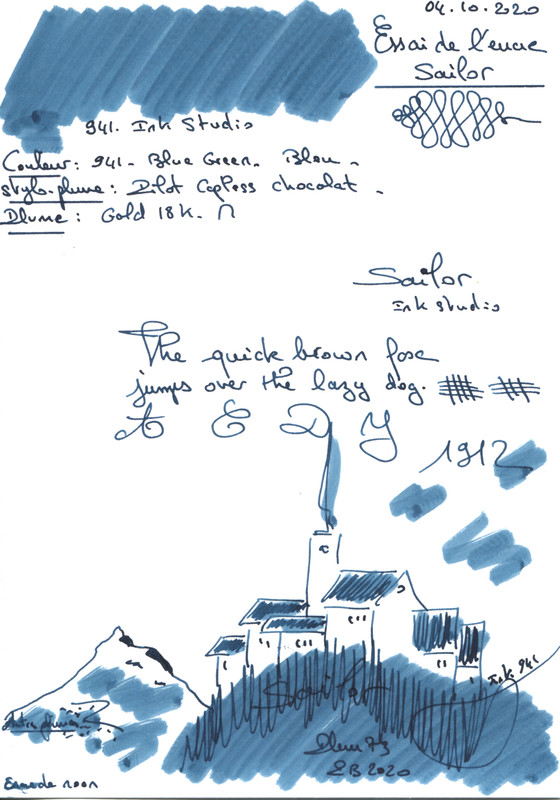 04.10.2020
Essai de l'encre
Sailor
941. Ink Studio
Couleur: 941 - Blue Green - Bleu -
stylo-plume: Pilot Capless chocolat -
Plume: Gold 18K. M
Sailor
Ink studio
The quick brown fose
jumps over the lazy dog.
A E D Y
1912
Ink 941
Sailor
Plum 73
EB 2020